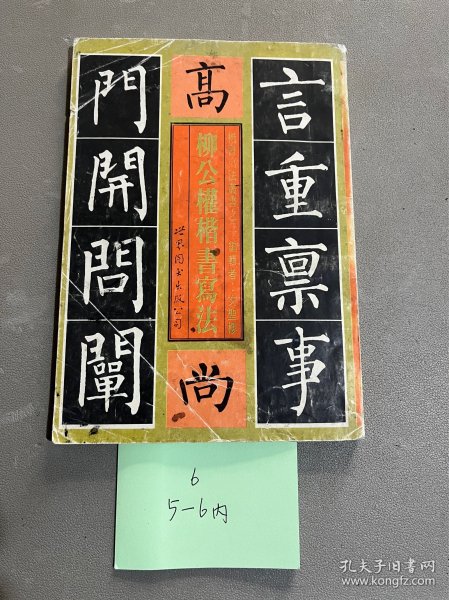 言重禀事
高尚
柳公權楷書寫法
世界图书出版公司
門開問闡
6
5-6内
孔夫子旧书网
www.kongfz.com